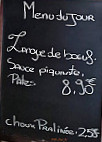 Menu du Jour
Langue de boeuf.
Sauce piquante.
Pâtes
8,90€
choux Pralinée: 2,50€